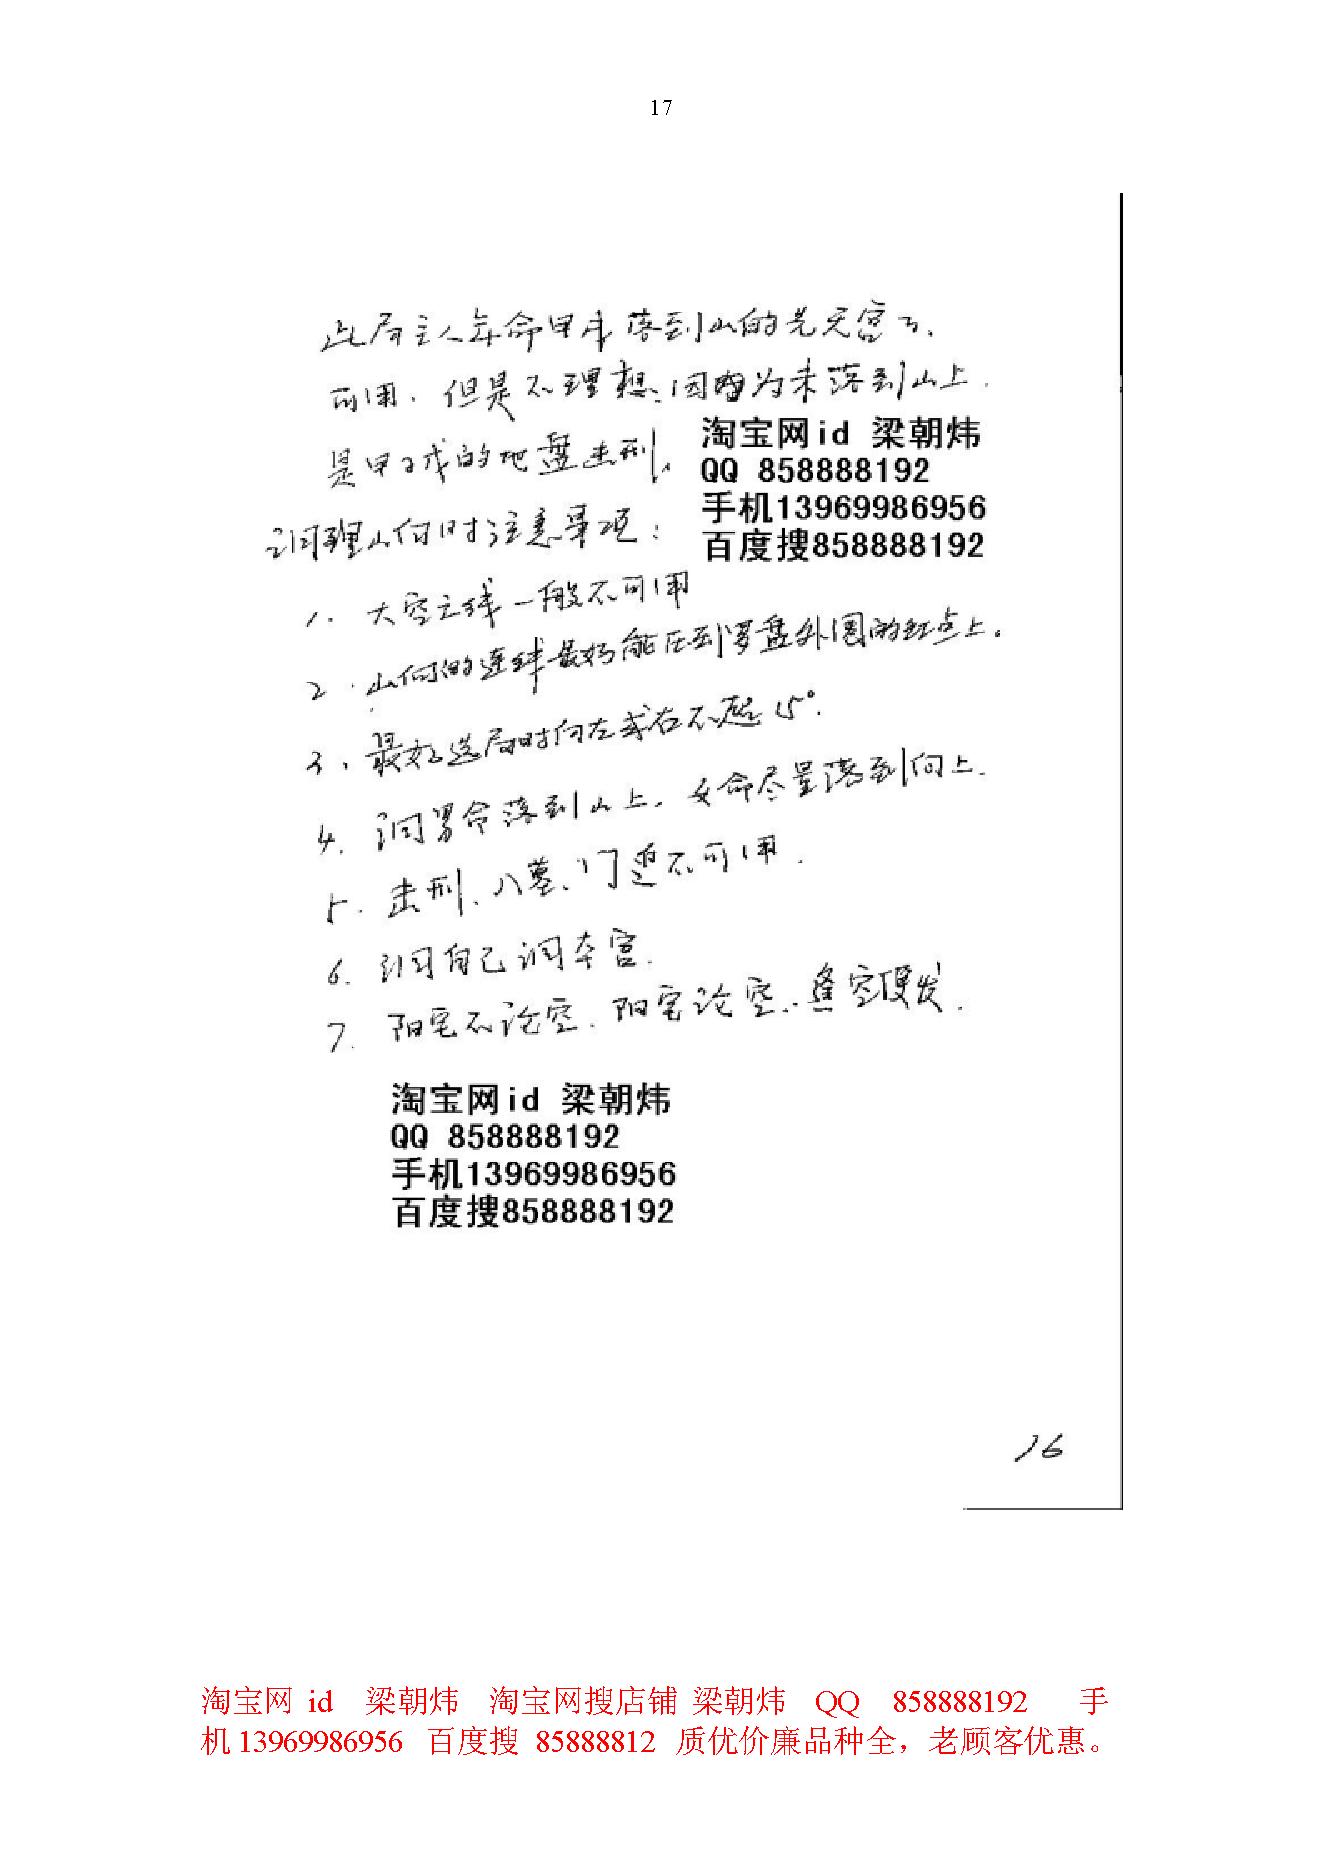 17
此局主人年命甲午落到山的先天宫了、
可用.但是不理想、因为未落到山上.
是甲子戊的地盘击刑、
淘宝网id 梁朝炜
QQ 858888192
手机13969986956
百度搜858888192
调理山向时注意事项:
1. 大空之线一般不可用
2.山向的连线最好能压到罗盘外圆的红点上。
3、最好选局时向左或右不超15°.
4. 调男命落到山上.女命尽量落到向上.
5. 击刑、入墓、门迫不可用.
6. 调自己调本宫.
7. 阳宅不论空.阳宅论空..逢空便发.
淘宝网id 梁朝炜
QQ 858888192
手机13969986956
百度搜858888192
16
淘宝网 id 梁朝炜 淘宝网搜店铺 梁朝炜 QQ 858888192 手
机13969986956 百度搜 85888812 质优价廉品种全，老顾客优惠。